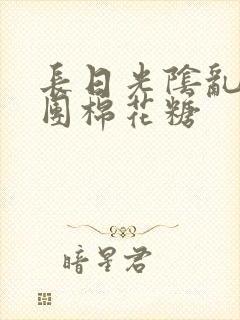 長日光陰亂
團棉花糖
暗星君